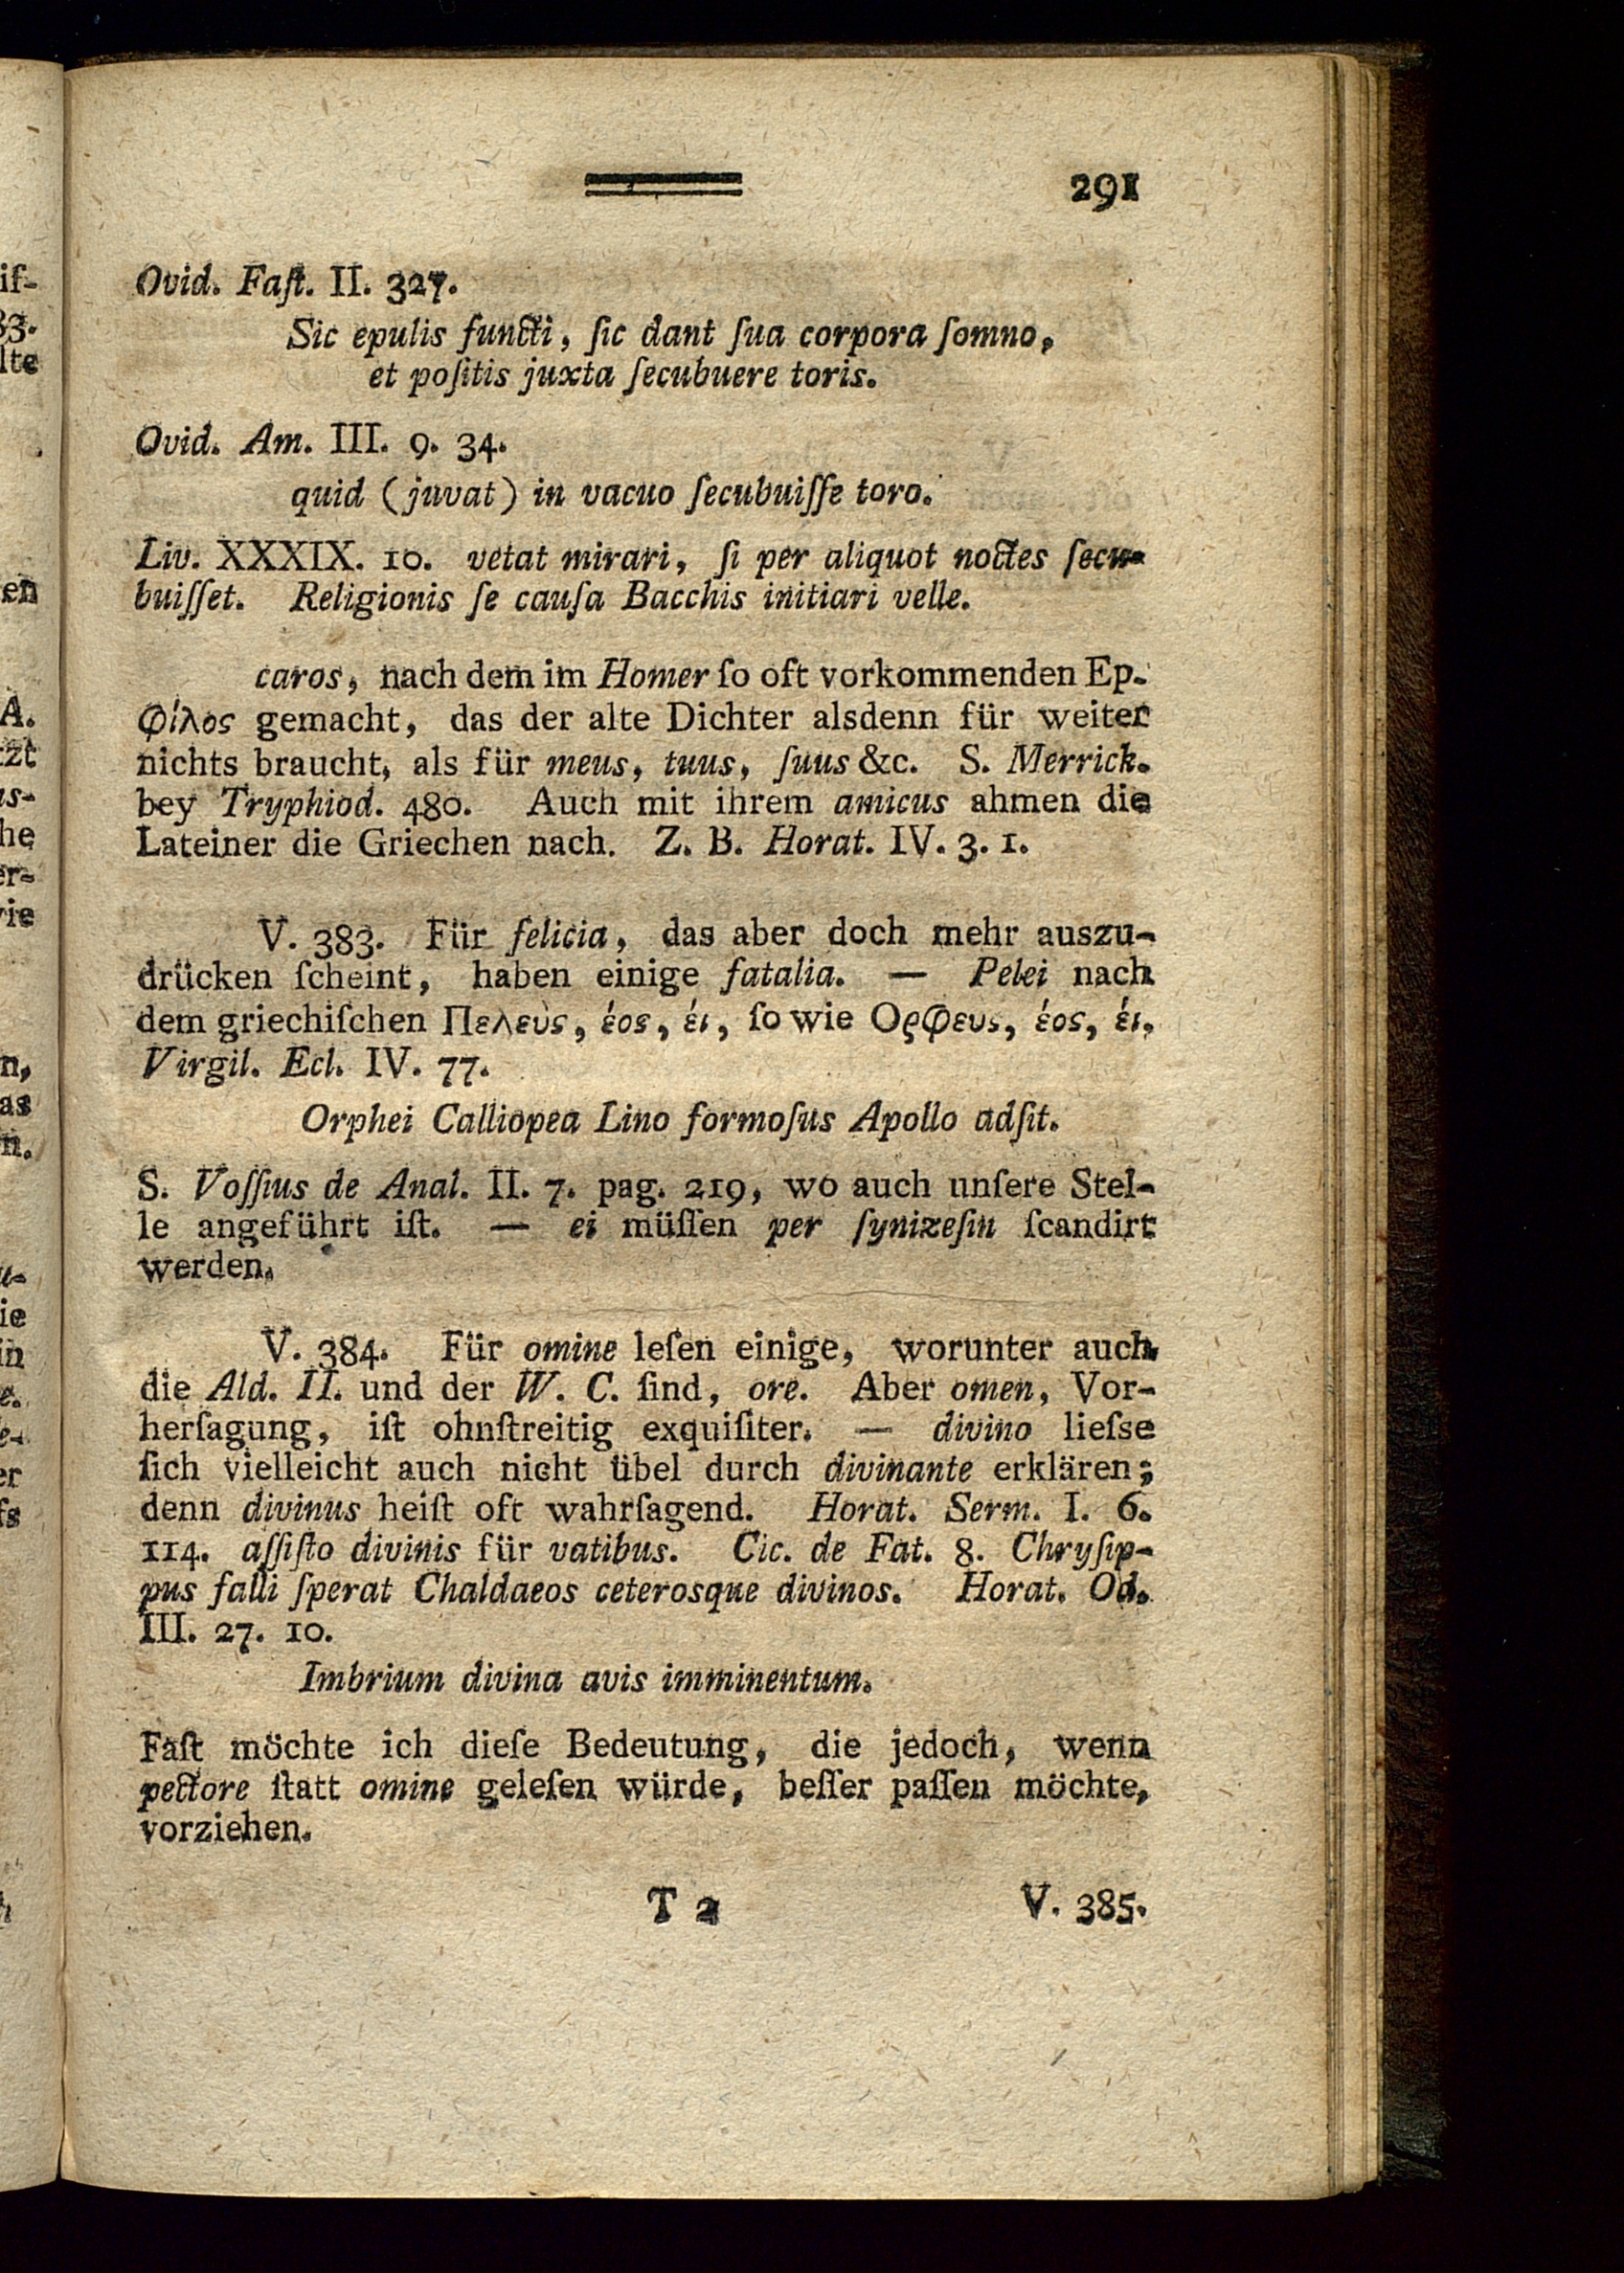 291
Ovid. Faſt. II. 327.
Sic epulis functi, ſic dant ſua corpora ſomno,
et poſitis juxta ſecubuere toris.
Ovid. Am. III. 9. 34.
quid (juvat) in vacuo ſecubuiſſe toro.
Liv. XXXIX. 10. vetat mirari, ſi per aliquot noctes ſecu-
buiſſet. Religionis ſe cauſa Bacchis initiari velle.
caros, nach dem im Homer ſo oft vorkommenden Ep.
φίλος gemacht, das der alte Dichter alsdenn für weiter
nichts braucht, als für meus, tuus, ſuus &c. S. Merrick.
bey Tryphiod. 480. Auch mit ihrem amicus ahmen die
Lateiner die Griechen nach. Z. B. Horat. IV. 3. 1.
V. 383. Für felicia, das aber doch mehr auszu-
drücken ſcheint, haben einige fatalia. — Pelei nach
dem griechiſchen Πελεὺς, έος, έι, ſo wie Ορφευς, έος, έι.
Virgil. Ecl. IV. 77.
Orphei Calliopea Lino formoſus Apollo adſit.
S. Voſſius de Anal. II. 7. pag. 219, wo auch unſere Stel-
le angeführt iſt. — ei müſſen per ſynizeſin ſcandirt
werden.
V. 384. Für omine leſen einige, worunter auch
die Ald. II. und der W. C. ſind, ore. Aber omen, Vor-
herſagung, iſt ohnſtreitig exquiſiter. — divino lieſse
ſich vielleicht auch nicht übel durch divinante erklären;
denn divinus heiſt oft wahrſagend. Horat. Serm. I. 6.
114. aſſiſto divinis für vatibus. Cic. de Fat. 8. Chryſip-
pus falli ſperat Chaldaeos ceterosque divinos. Horat. Od.
III. 27. 10.
Imbrium divina avis imminentum.
Faſt möchte ich dieſe Bedeutung, die jedoch, wenn
pectore ſtatt omine geleſen würde, beſſer paſſen möchte,
vorziehen.
T 2
V. 385.